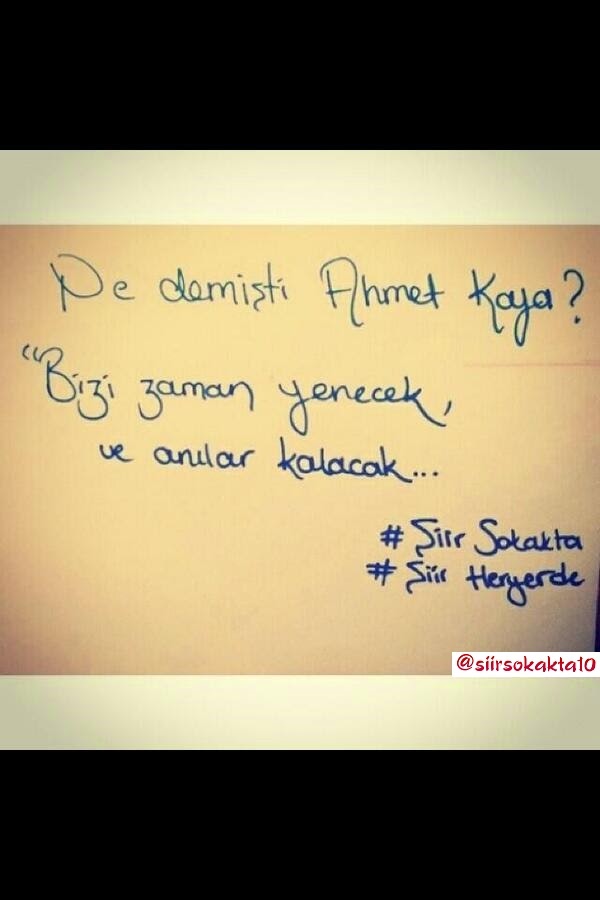 Ne demişti Ahmet Kaya?
“Bizi zaman yenecek,
ve anılar kalacak...
# Şiir Sokakta
# Şiir Heryerde
@siirsokakta10